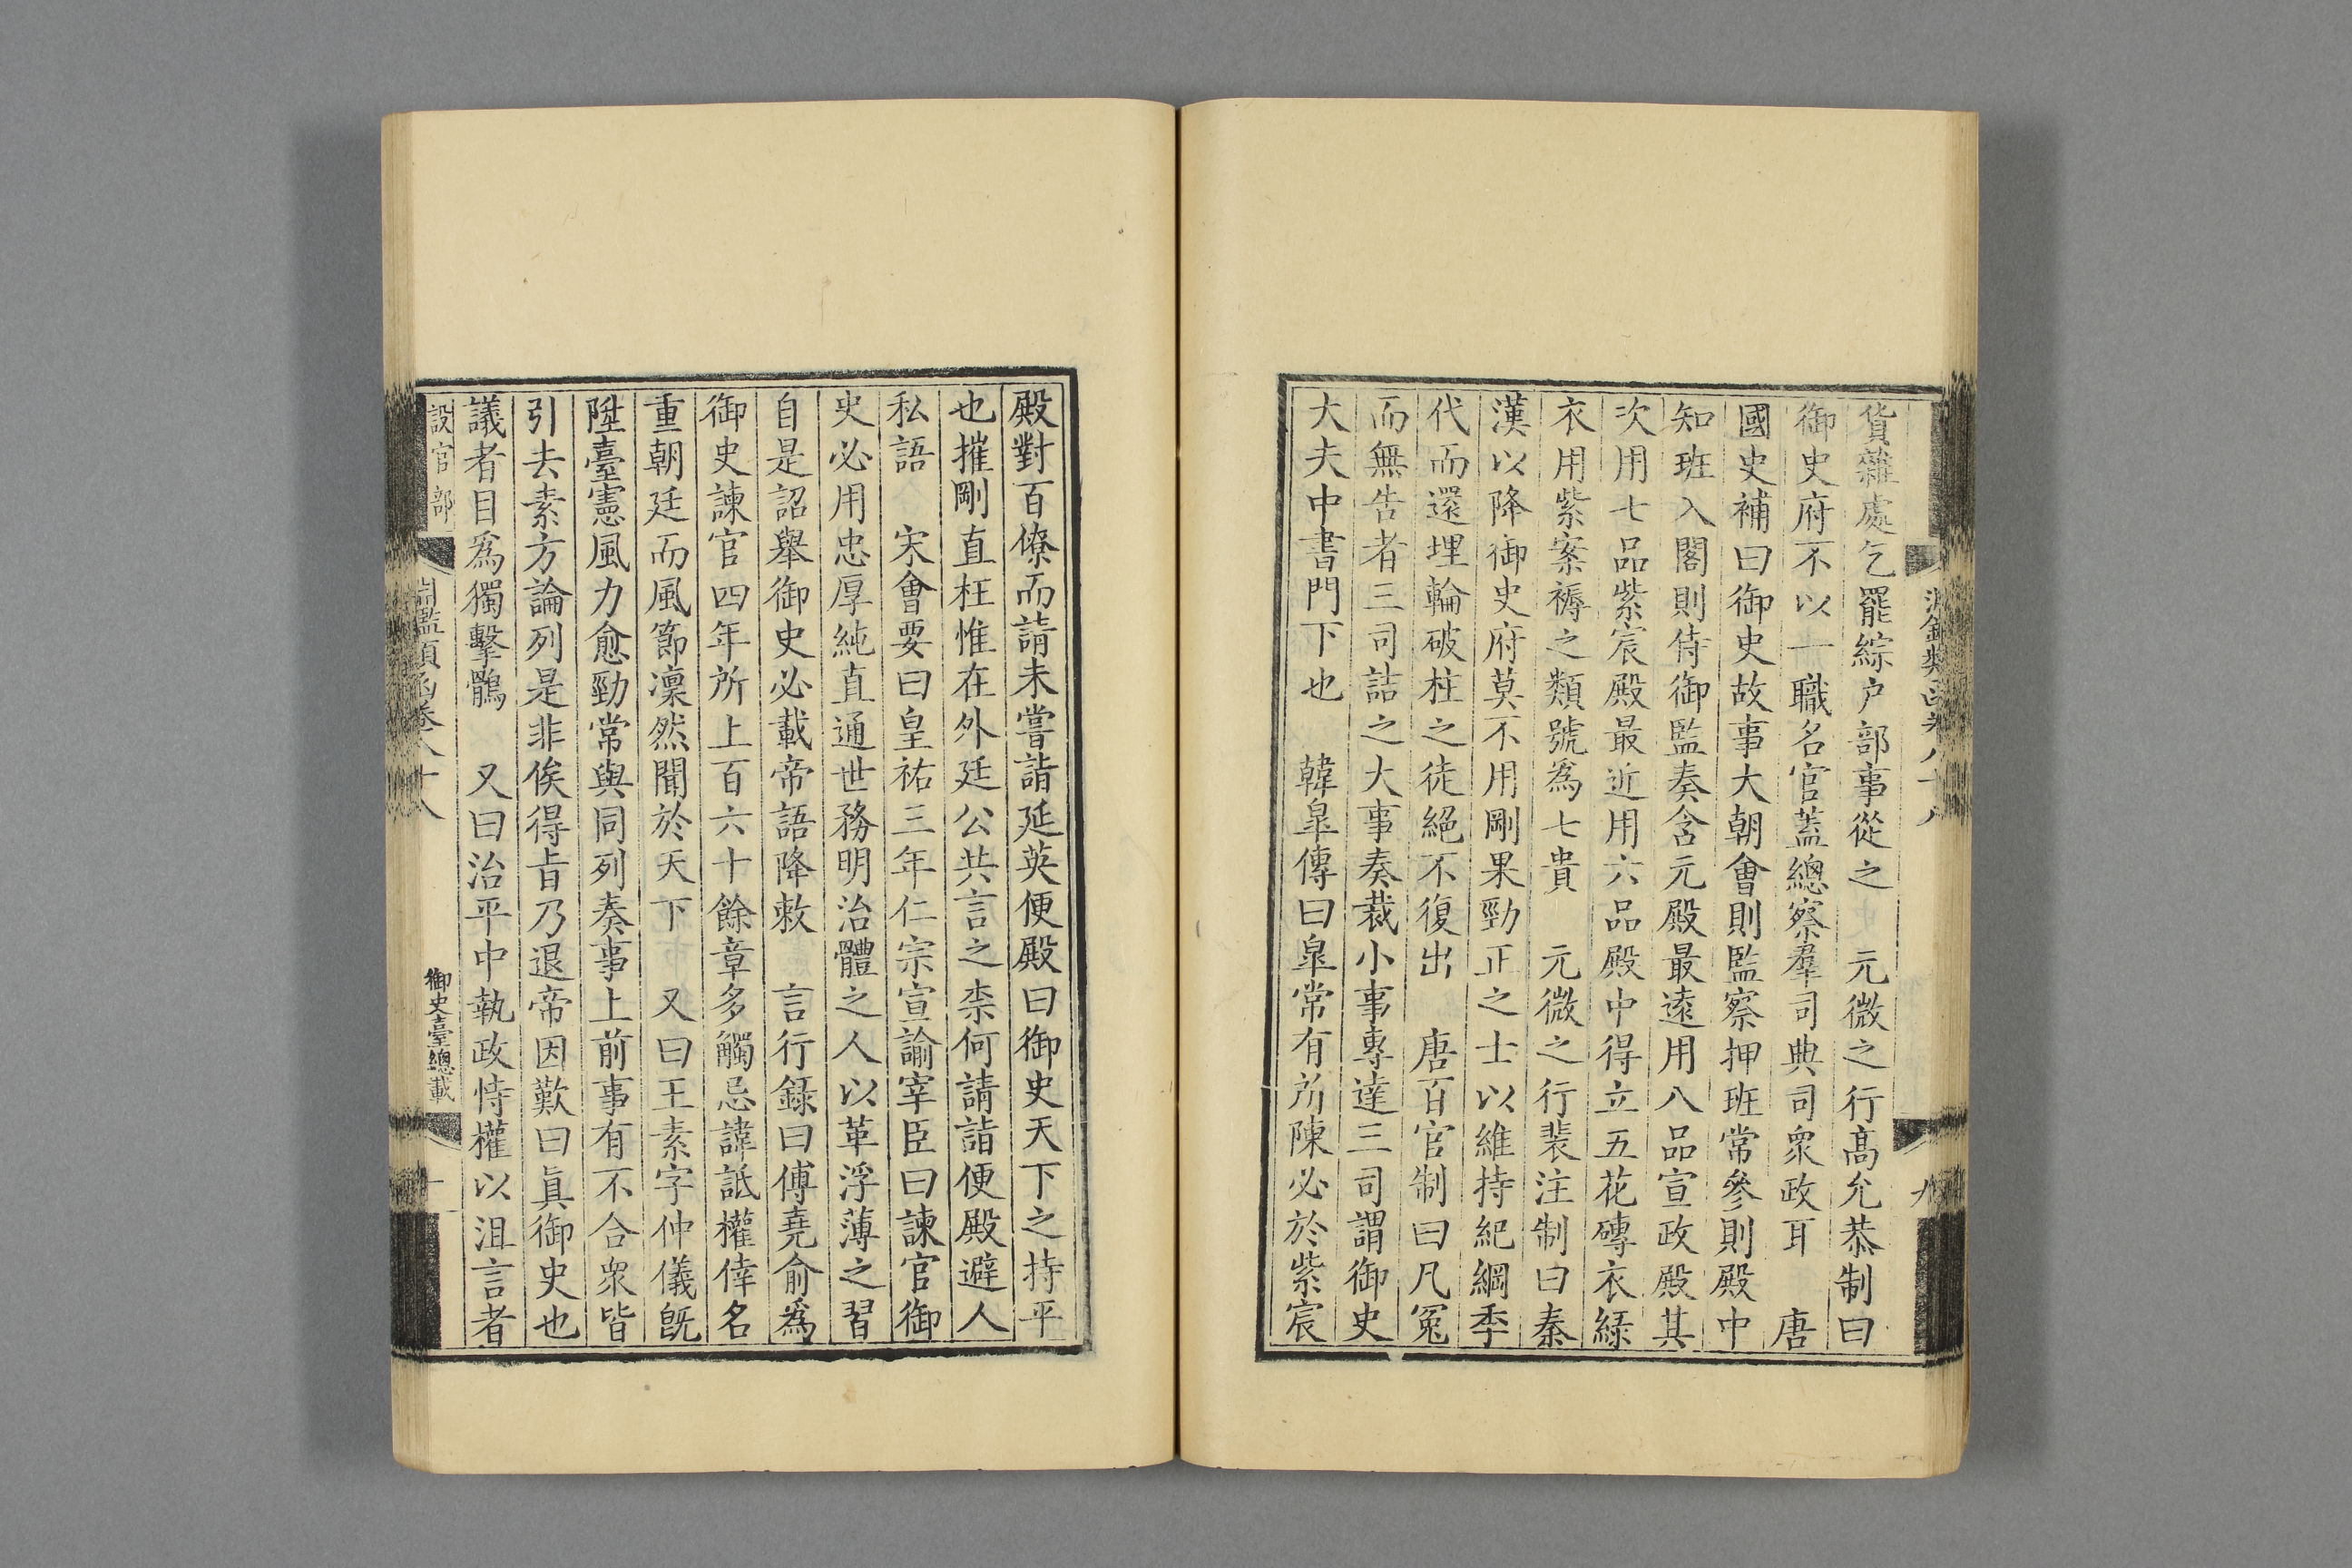 貨雜處乞罷綜户部事從之　元微之行高允恭制曰
御史府不以一職名官蓋總察羣司典司衆政耳　唐
國史補曰御史故事大朝會則監察押班常參則殿中
知班入閣則侍御監奏含元殿最遠用八品宣政殿其
次用七品紫宸殿最近用六品殿中得立五花磚衣緑
衣用紫案褥之類號爲七貴　元微之行裴注制曰秦
漢以降御史府莫不用剛果勁正之士以維持紀綱季
代而還埋輪破柱之徒絕不復出　唐百官制曰凡冤
而無告者三司詰之大事奏裁小事專達三司謂御史
大夫中書門下也　韓臯傳曰臯常有所陳必於紫宸
殿對百僚而請未嘗詣延英便殿曰御史天下之持平
也摧剛直枉惟在外廷公共言之柰何請詣便殿避人
私語　宋會要曰皇祐三年仁宗宣諭宰臣曰諫官御
史必用忠厚純直通世務明治體之人以革浮薄之習
自是詔舉御史必載帝語降敕　言行錄曰傅堯俞爲
御史諫官四年所上百六十餘章多觸忌諱詆權倖名
重朝廷而風節凜然聞於天下　又曰王素字仲儀旣
陞臺憲風力愈勁常與同列奏事上前事有不合衆皆
引去素方論列是非俟得旨乃退帝因歎曰眞御史也
議者目爲獨擊鶻　又曰治平中執政恃權以沮言者
設官部
御史臺總載